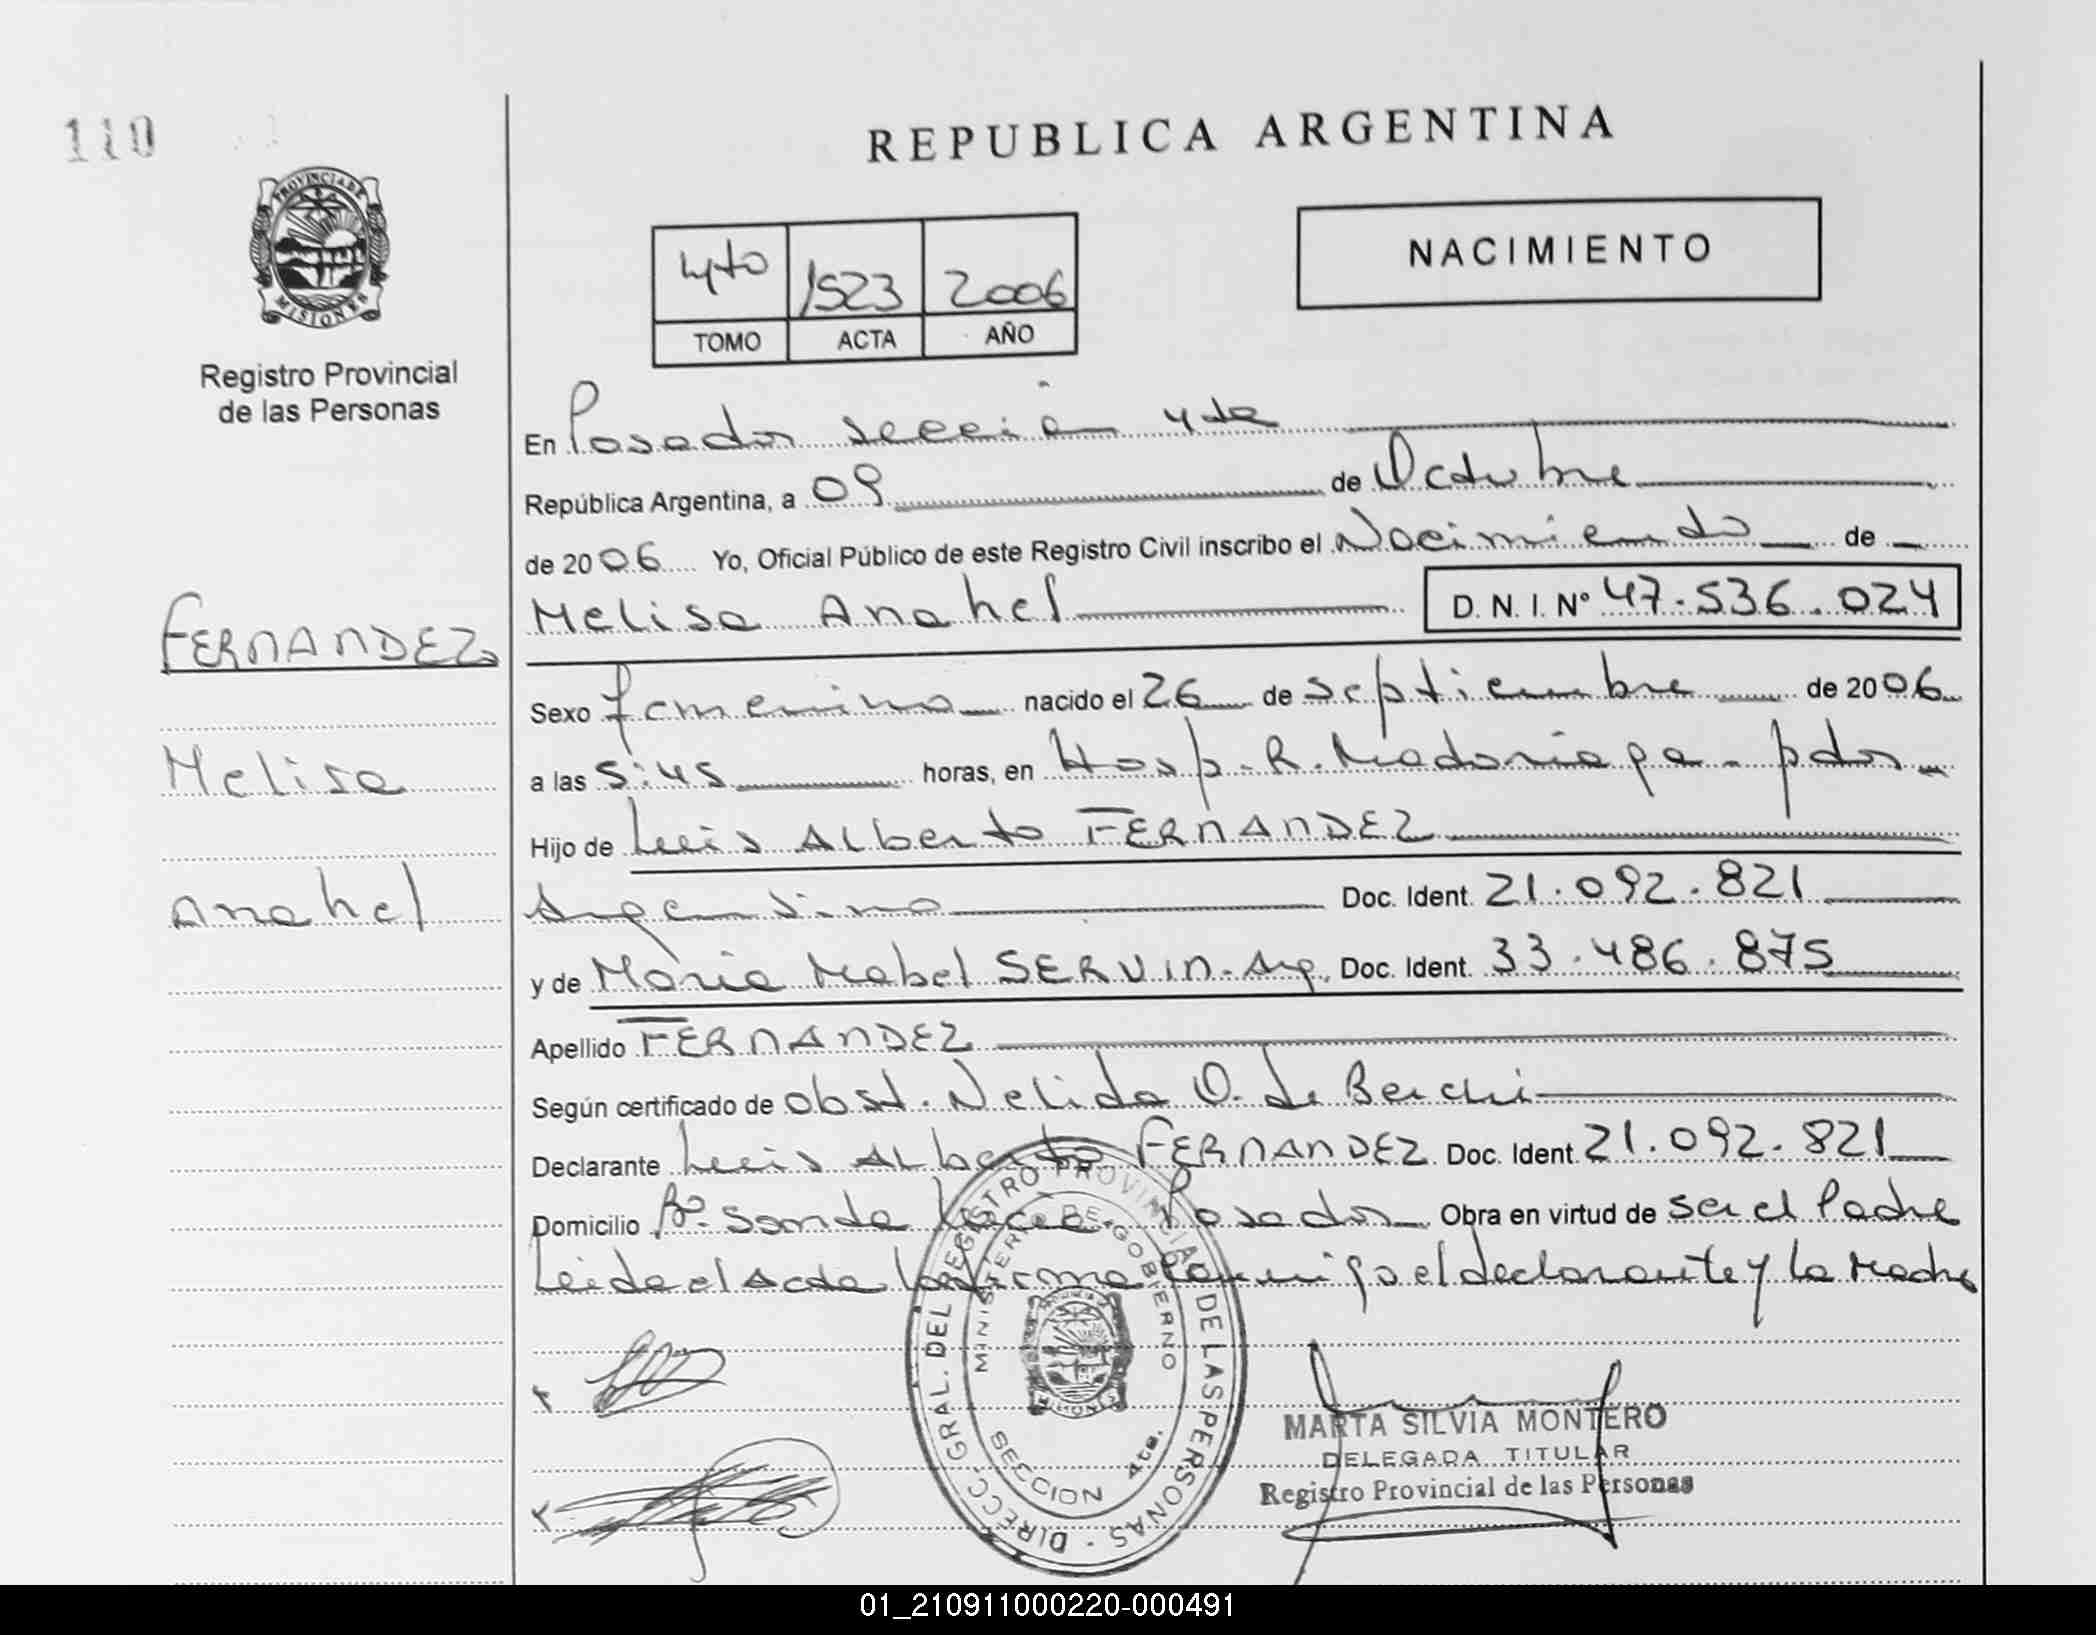 110
REPUBLICA ARGENTINA
PROVINCIA DE
MISIONES
Registro Provincial
de las Personas
4to 1523 2006
TOMO ACTA AÑO
NACIMIENTO
En Posadas sección 4ta
República Argentina, a 09 de Octubre
de 2006 Yo, Oficial Público de este Registro Civil inscribo el Nacimiento de
Melisa Anahel D. N. I. Nº 47.536.024
FERNANDEZ
Melisa
Anahel
Sexo femenino nacido el 26 de septiembre de 2006
a las 5:45 horas, en Hosp. R. Madariaga - pdas
Hijo de Luis Alberto FERNANDEZ
Argentino Doc. Ident. 21.092.821
y de María Mabel SERVIN - Arg. Doc. Ident. 33.486.875
Apellido FERNANDEZ
Según certificado de obst. Nelida O. de Berchi
Declarante Luis Alberto FERNANDEZ Doc. Ident. 21.092.821
Domicilio Bº. Santa Posadas Obra en virtud de ser el Padre
Leida el Acta la firma conmigo el declarante y la Madre
DIRECC. GRAL. DEL REGISTRO PROVINCIAL DE LAS PERSONAS
MINISTERIO DE GOBIERNO
SECCION 4ta.
MARTA SILVIA MONTERO
DELEGADA TITULAR
Registro Provincial de las Personas
01_210911000220-000491